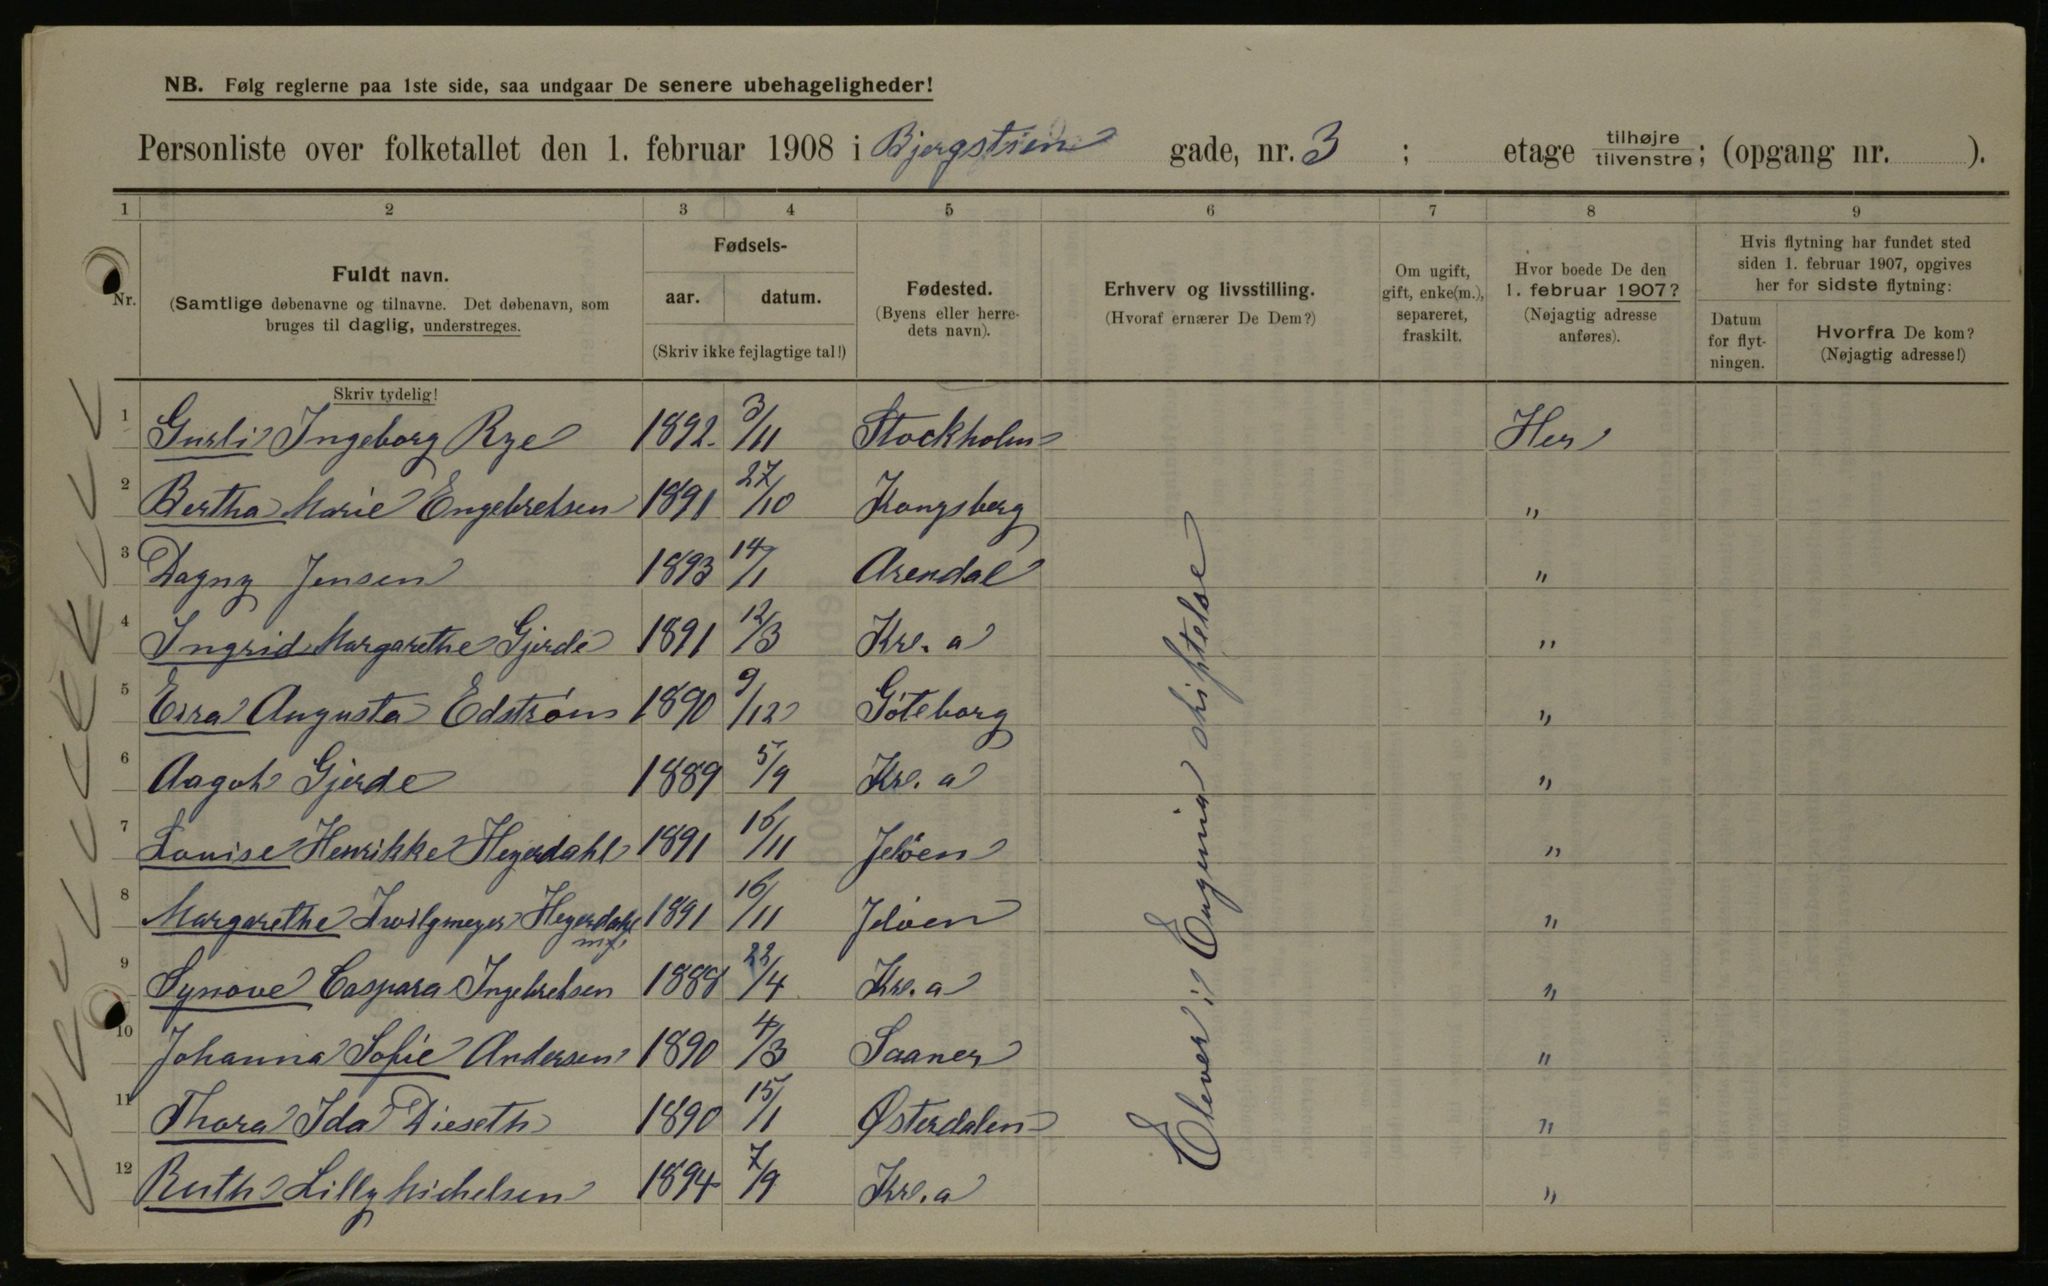 NB. Følg reglerne paa 1ste side, saa undgaar De senere ubehageligheder!
Personliste over folketallet den 1. februar 1908 i Bjergstien gade, nr. 3 ; etage tilhøjre tilvenstre; (opgang nr. ).
1 2 3 4 5 6 7 8 9
Nr.
Fuldt navn.
(Samtlige døbenavne og tilnavne. Det døbenavn, som
bruges til daglig, understreges.
Skriv tydelig!
Fødsels-
aar. datum.
(Skriv ikke fejlagtige tal!)
Fødested.
(Byens eller herre-
dets navn).
Erhverv og livsstilling.
(Hvoraf ernærer De Dem?)
Om ugift,
gift, enke(m.),
separeret,
fraskilt.
Hvor boede De den
1. februar 1907?
(Nøjagtig adresse
anføres).
Hvis flytning har fundet sted
siden 1. februar 1907, opgives
her for sidste flytning:
Datum
for flyt-
ningen.
Hvorfra De kom?
(Nøjagtig adresse!)
1 Gurli Ingeborg Rye 1892. 3/11 Stockholm Her
2 Bertha Marie Engebretsen 1891 27/10 Kongsberg "
3 Dagny Jensen 1893 14/1 Arendal "
4 Ingrid Margarethe Gjerde 1891 12/3 Kr. a "
5 Augusta Edstrøm 1890 9/12 Göteborg "
6 Aagot Gjerde 1889 5/9 Kr. a "
7 Louise Henrikke Heyerdahl 1891 16/11 Jeløen "
8 Margarethe Zwilgmeyer Heyerdahl 1891 16/11 Jeløen "
9 Synøve Caspara Ingebretsen 1888 22/4 Kr. a "
10 Johanna Sofie Andersen 1890 4/3 Saaner "
11 Thora Ida Dieseth 1890 15/1 Østerdalen "
12 Ruth Lilly Michelsen 1894 7/9 Kr. a "
Elever i Eugenia stiftelse